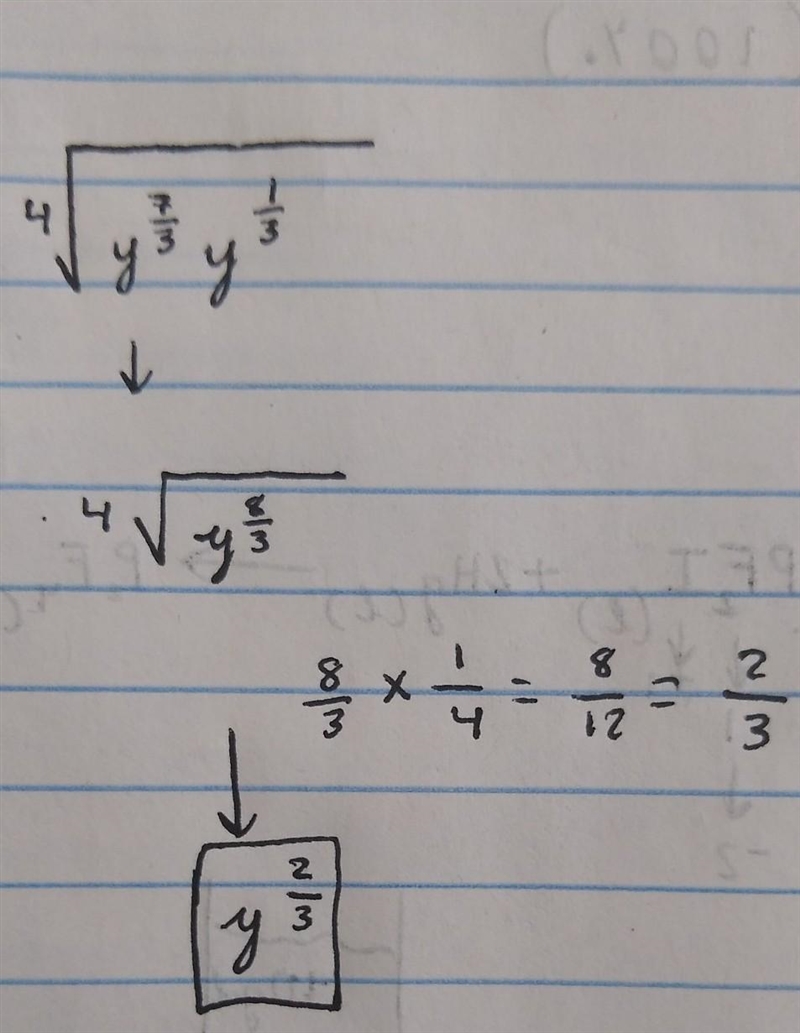 ⁴√(y^(7/3) y^(1/3))
↓
⁴√(y^(8/3))
8/3 × 1/4 = 8/12 = 2/3
↓
y^(2/3)